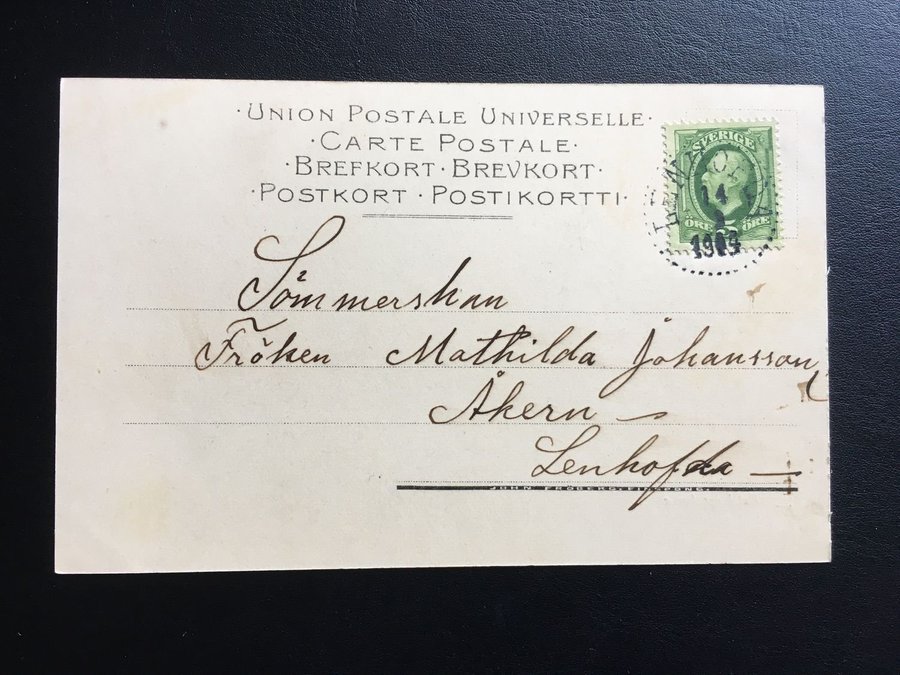 ·UNION POSTALE UNIVERSELLE·
·CARTE POSTALE·
·BREFKORT·BREVKORT·
·POSTKORT·POSTIKORTTI·
SVERIGE
ÖRE 5 ÖRE
14
Sömmerskan
Fröken Mathilda Johansson,
Åkern
Lenhofda
JOHN FRÖBERG, FINSPONG.